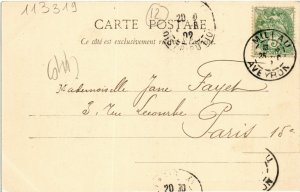 113319
CARTE POSTALE
(12)
Ce côté est exclusivement
MILLAU
AVEYRON
20
02
Mademoiselle Jane Fayet
3, Rue Lecourbe
Paris 15e
20